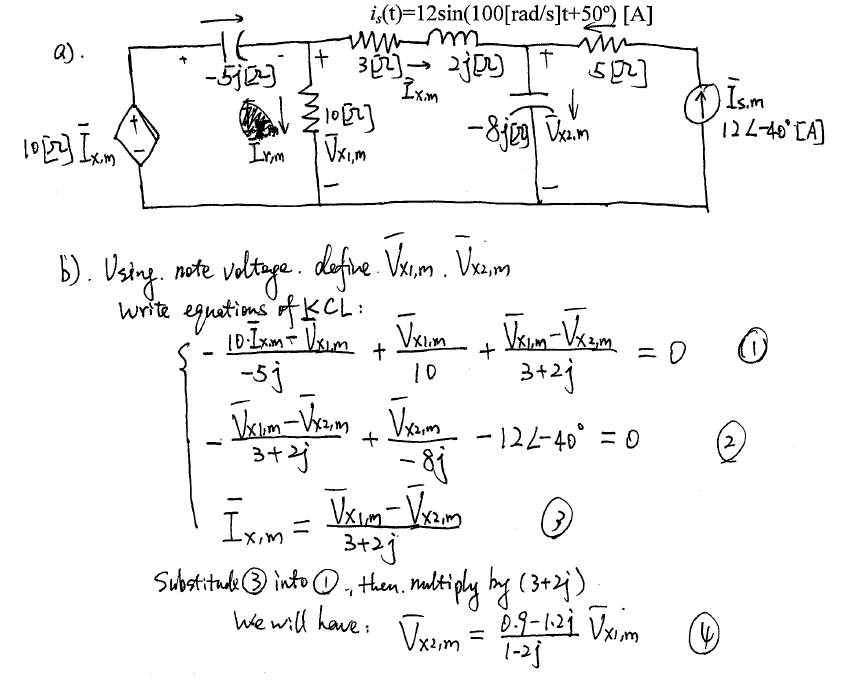 i_s(t)=12sin(100[rad/s]t+50º) [A]
a).
+ -5j[Ω] - + 3[Ω] → 2j[Ω] + 5[Ω]
Ī_x,m
10[Ω] Ī_x,m + - Ī_r,m 10[Ω] V̄_x1,m - -8j[Ω] V̄_x2,m - Ī_s,m
12∠-40° [A]
b). Using. note voltage. define. V̄_x1,m . V̄_x2,m
Write equations of KCL:
- (10·Ī_x,m - V̄_x1,m)/(-5j) + V̄_x1,m/10 + (V̄_x1,m - V̄_x2,m)/(3+2j) = 0 ①
- (V̄_x1,m - V̄_x2,m)/(3+2j) + V̄_x2,m/(-8j) - 12∠-40° = 0 ②
Ī_x,m = (V̄_x1,m - V̄_x2,m)/(3+2j) ③
Substitude ③ into ①, then. multiply by (3+2j)
We will have: V̄_x2,m = (0.9-1.2j)/(1-2j) V̄_x1,m ④